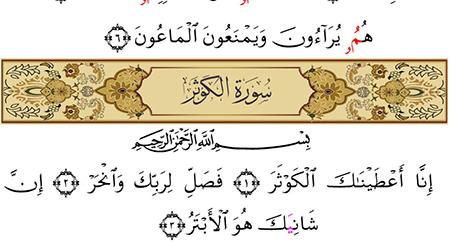 هُمُۥ يُرَآءُونَ وَيَمْنَعُونَ ٱلْمَاعُونَ ﴿٦﴾
سُورَةُ الكَوْثَرِ
بِسْمِ ٱللَّهِ ٱلرَّحْمَٰنِ ٱلرَّحِيمِ
إِنَّا أَعْطَيْنَٰكَ ٱلْكَوْثَرَ ﴿١﴾ فَصَلِّ لِرَبِّكَ وَٱنْحَرْ ﴿٢﴾ إِنَّ
شَانِيَكَ هُوَ ٱلْأَبْتَرُ ﴿٣﴾